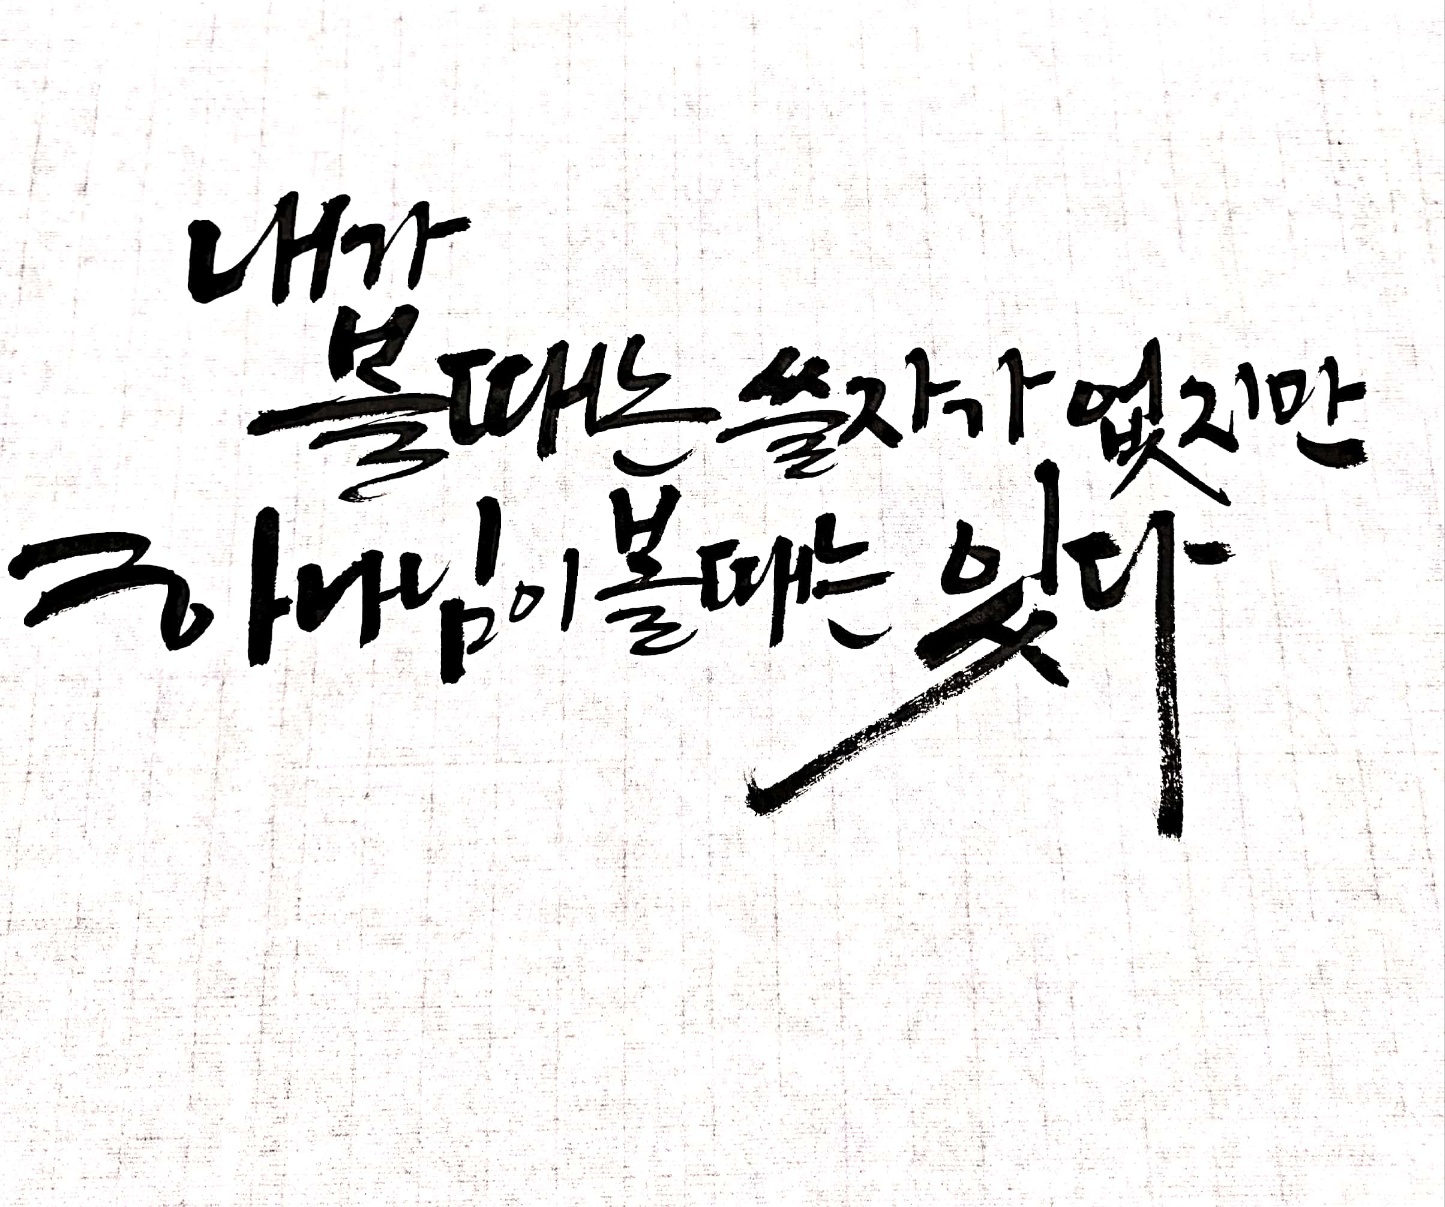 내가
볼때는 쓸자가 없지만
하나님이 볼때는 있다